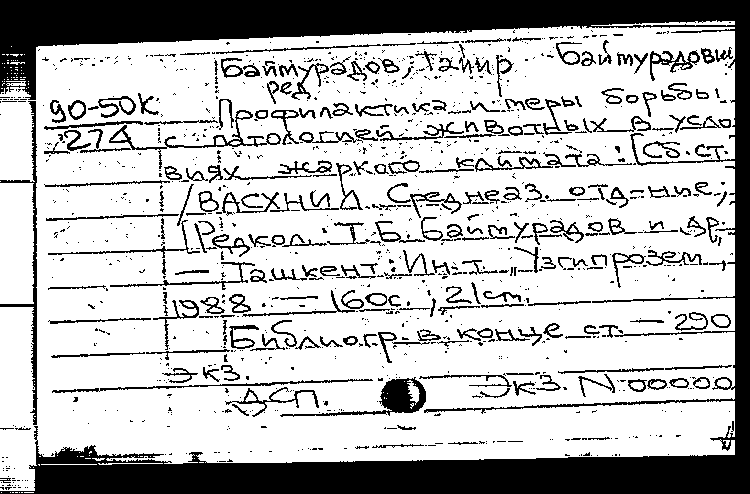 Баймурадов, Таиир Баймурадови
ред.
90-50К Профилактика и меры борьбы
274 с патологией животных в усло-
виях жаркого климата : [Сб. ст.
/ВАСХНИЛ. Среднеаз. отд-ние;
[Редкол.: Т.Б. Баймурадов и др.
— Ташкент : Ин-т „Узгипрозем",
1988. — 160с. ; 21см.
Библиогр. в конце ст. — 290
экз.
ДСП. Экз. N 00000